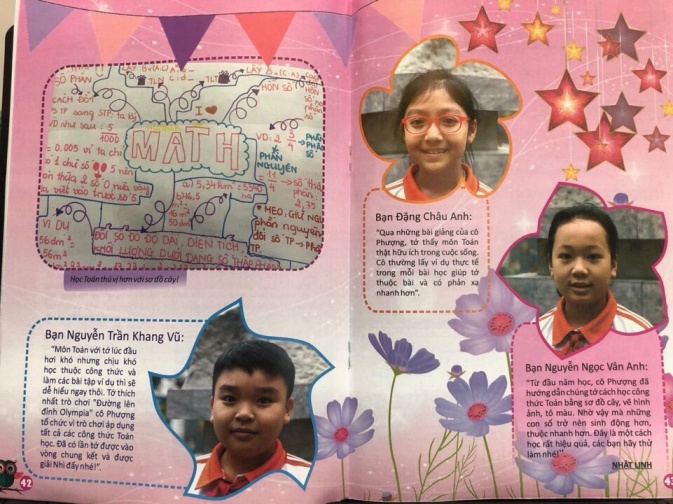 I
MATH
CÁCH ĐỔI
VD như sau: 5
1000
= 0.005 vì ta chỉ
VÍ DỤ
56dm²
56m²
a) 5,34 km²
VD: 2 3/4
PHẦN
NGUYÊN
ĐỔI SỐ ĐO ĐỘ DÀI, DIỆN TÍCH
KHỐI LƯỢNG DƯỚI DẠNG SỐ THẬP PHÂN
Học Toán thú vị hơn với sơ đồ cây!
Bạn Nguyễn Trần Khang Vũ:
"Môn Toán với tớ lúc đầu
hơi khó nhưng chịu khó
học thuộc công thức và
làm các bài tập ví dụ thì sẽ
dễ hiểu ngay thôi. Tớ thích
nhất trò chơi "Đường lên
đỉnh Olympia" cô Phượng
tổ chức vì trò chơi áp dụng
tất cả các công thức Toán
học. Đã có lần tớ được vào
vòng chung kết và được
giải Nhì đấy nhé!".
42
Bạn Đặng Châu Anh:
"Qua những bài giảng của cô
Phượng, tớ thấy môn Toán
thật hữu ích trong cuộc sống.
Cô thường lấy ví dụ thực tế
trong mỗi bài học giúp tớ
thuộc bài và có phản xạ
nhanh hơn".
Bạn Nguyễn Ngọc Vân Anh:
"Từ đầu năm học, cô Phượng đã
hướng dẫn chúng tớ cách học công
thức Toán bằng sơ đồ cây, vẽ hình
ảnh, tô màu. Nhờ vậy mà những
con số trở nên sinh động hơn,
thuộc nhanh hơn. Đây là một cách
học rất hiệu quả, các bạn hãy thử
làm nhé!"
NHẬT LINH